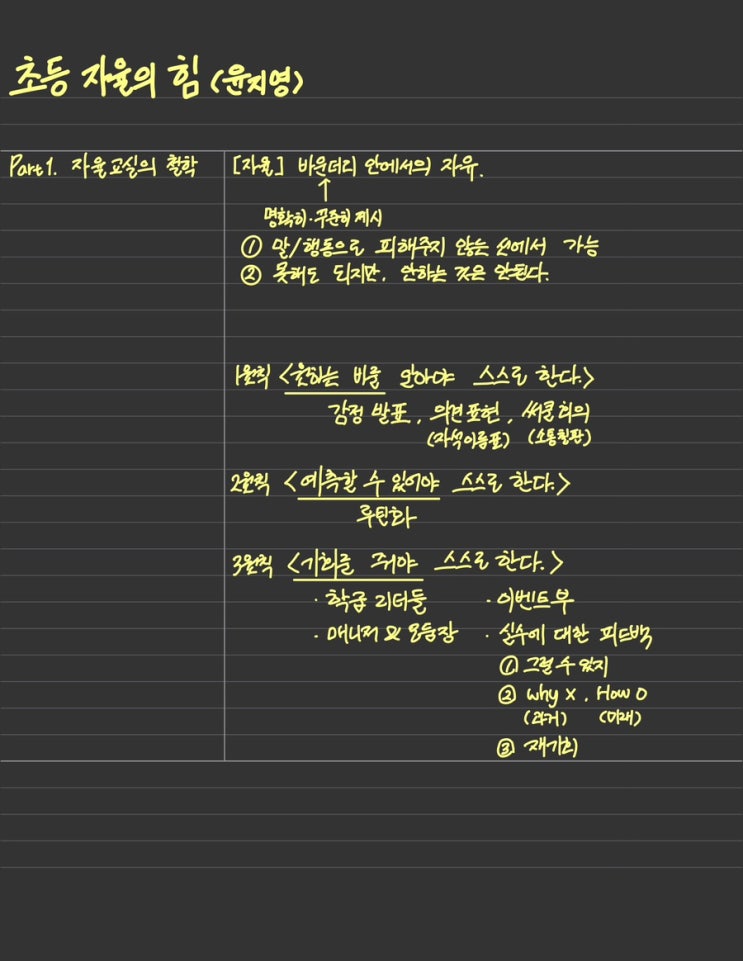 초등 자율의 힘 (윤지영)
Part1. 자율교실의 철학
[자율] 바운더리 안에서의 자유.
↑
명확히·꾸준히 제시
① 말/행동으로 피해주지 않는 선에서 가능
② 못해도 되지만, 안하는 것은 안된다.
1원칙 <원하는 바를 알아야 스스로 한다.>
감정 발표, 의견표현, 써클회의
(자석이름표) (소통칠판)
2원칙 <예측할 수 있어야 스스로 한다.>
루틴화
3원칙 <기회를 줘야 스스로 한다.>
· 학급 리더들 · 이벤트부
· 매니저 & 모둠장 · 실수에 대한 피드백
① 그럴 수 있지
② Why X, How O
(과거) (미래)
③ 재기회